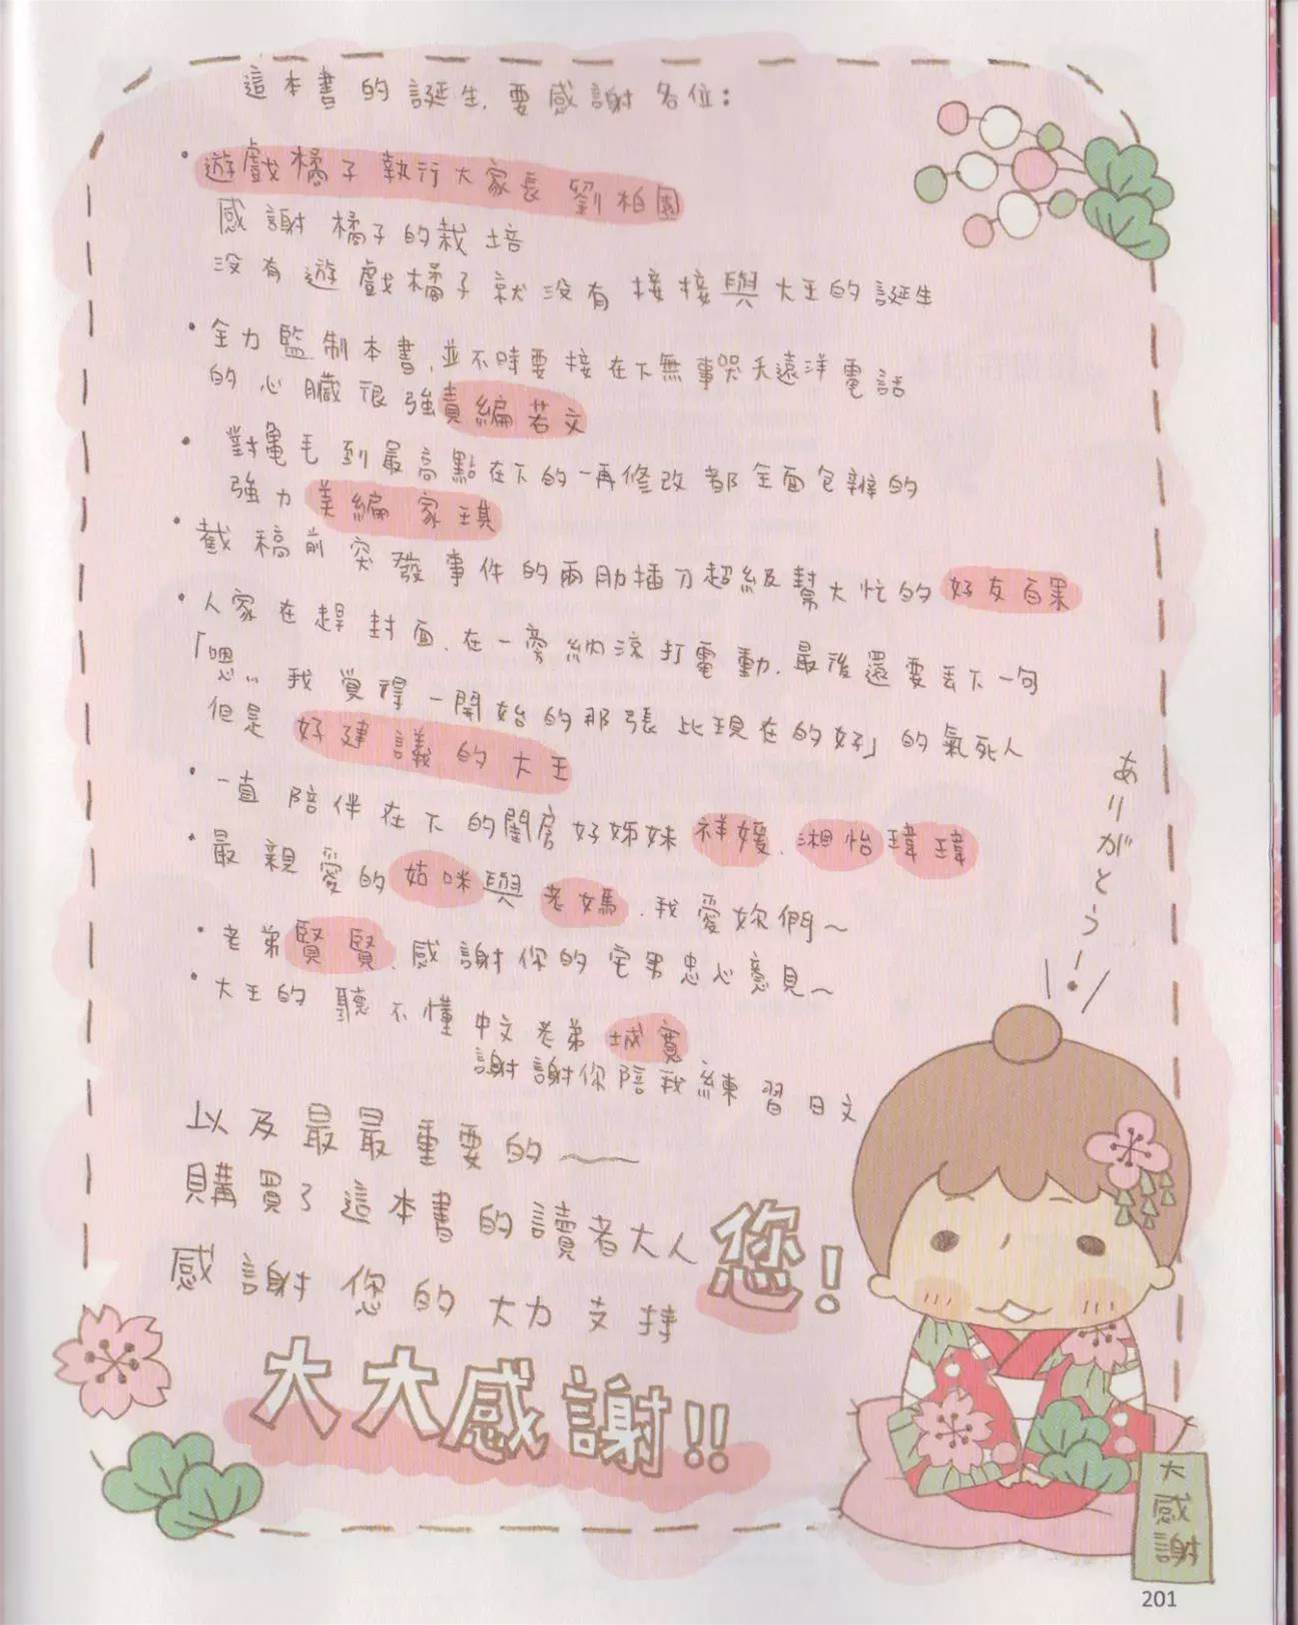 這本書的誕生,要感謝各位:
・遊戲橘子執行大家長 劉柏園
感謝橘子的栽培
沒有遊戲橘子就沒有接接與大王的誕生
・全力監制本書,並不時要接在下無事哭夭遠洋電話
的心臟很強責編若文
・對龜毛到最高點在下的一再修改都全面包辦的
強力美編家琪
・截稿前突發事件的兩肋插刀超級幫大忙的好友百果
・人家在趕封面,在一旁納涼打電動,最後還要丟下一句
「嗯…我覺得一開始的那張比現在的好」的氣死人
但是好建議的大王
・一直陪伴在下的閨房好姊妹祥媛、湘怡瑋瑋
・最親愛的姑咪與老媽,我愛妳們~
・老弟賢賢,感謝你的宅男忠心意見~
・大王的聽不懂中文老弟城寬
謝謝你陪我練習日文
以及最最重要的~
購買了這本書的讀者大人您!
感謝您的大力支持
大大感謝!!
ありがとうー!
大感謝
201